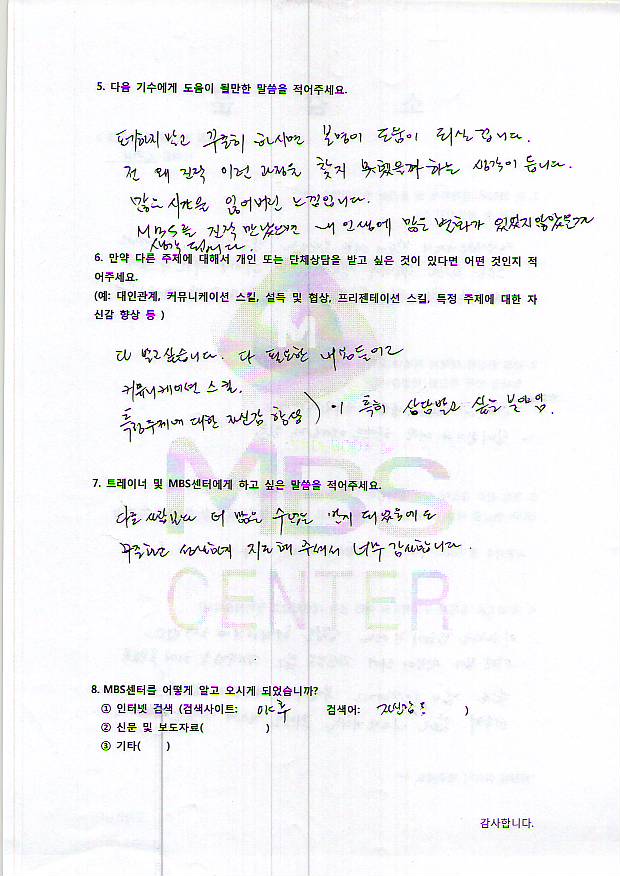 5. 다음 기수에게 도움이 될만한 말씀을 적어주세요.
포기하지 말고 꾸준히 하시면 분명히 도움이 되실 겁니다.
전 왜 진작 이런 과정을 찾지 못했을까 하는 생각이 듭니다.
많은 시간을 잃어버린 느낌입니다.
MBS를 진작 만났으면 내 인생에 많은 변화가 있었지 않았을까
생각 됩니다.
6. 만약 다른 주제에 대해서 개인 또는 단체상담을 받고 싶은 것이 있다면 어떤 것인지 적
어주세요.
(예: 대인관계, 커뮤니케이션 스킬, 설득 및 협상, 프리젠테이션 스킬, 특정 주제에 대한 자
신감 향상 등 )
다 받고싶습니다. 다 필요한 내용들이고
커뮤니케이션 스킬.
특정주제에 대한 자신감 향상 ) 이 특히 상담받고 싶은 분야임.
MBS
7. 트레이너 및 MBS센터에게 하고 싶은 말씀을 적어주세요.
다른 사람보다 더 많은 수업을
지도해 주셔서 너무 감사합니다.
CENTER
8. MBS센터를 어떻게 알고 오시게 되었습니까?
① 인터넷 검색 (검색사이트: 야후 검색어: 자신감 )
② 신문 및 보도자료( )
③ 기타( )
감사합니다.